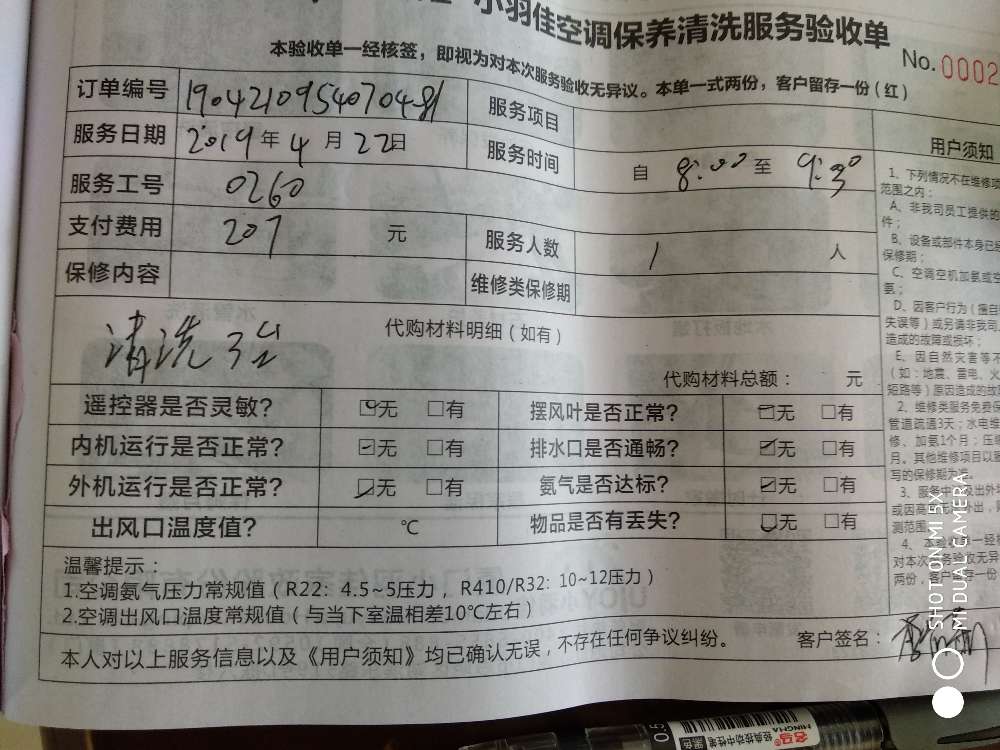 小羽佳空调保养清洗服务验收单
No. 0002
本验收单一经核签，即视为对本次服务验收无异议。本单一式两份，客户留存一份（红）
订单编号 服务项目
服务日期 2019年4月22日 服务时间 自 8:00 至 9:30
服务工号 0260
支付费用 207 元 服务人数 1 人
保修内容 维修类保修期
清洗3台 代购材料明细（如有）
代购材料总额： 元
遥控器是否灵敏？ ☑无 □有 摆风叶是否正常？ ☑无 □有
内机运行是否正常？ ☑无 □有 排水口是否通畅？ ☑无 □有
外机运行是否正常？ ☑无 □有 氨气是否达标？ ☑无 □有
出风口温度值？ ℃ 物品是否有丢失？ ☑无 □有
温馨提示：
1.空调氨气压力常规值（R22：4.5~5压力，R410/R32：10~12压力）
2.空调出风口温度常规值（与当下室温相差10℃左右）
本人对以上服务信息以及《用户须知》均已确认无误，不存在任何争议纠纷。 客户签名：
用户须知
1、下列情况不在维修项
范围之内：
A、非我司员工提供的
件；
B、设备或部件本身已经
保修期；
C、空调空机加氨或空
氨；
D、因客户行为（擅自
失误等）或另请非我司
造成的故障或损坏；
E、因自然灾害等不
（如：地震、雷电、火
短路等）原因造成的故
2、维修类服务免费保
管道疏通3天；水电维
修、加氨1个月；压缩
月。其他维修项目以
写的保修期为准。
3、服务中
或因高
测范围
4、本验收单一经核
对本次服务验收无异
两份，客户留存一份
SHOT ON MI 5X
MI DUAL CAMERA
0.5
MINGHA
黑色
经典按动中性笔